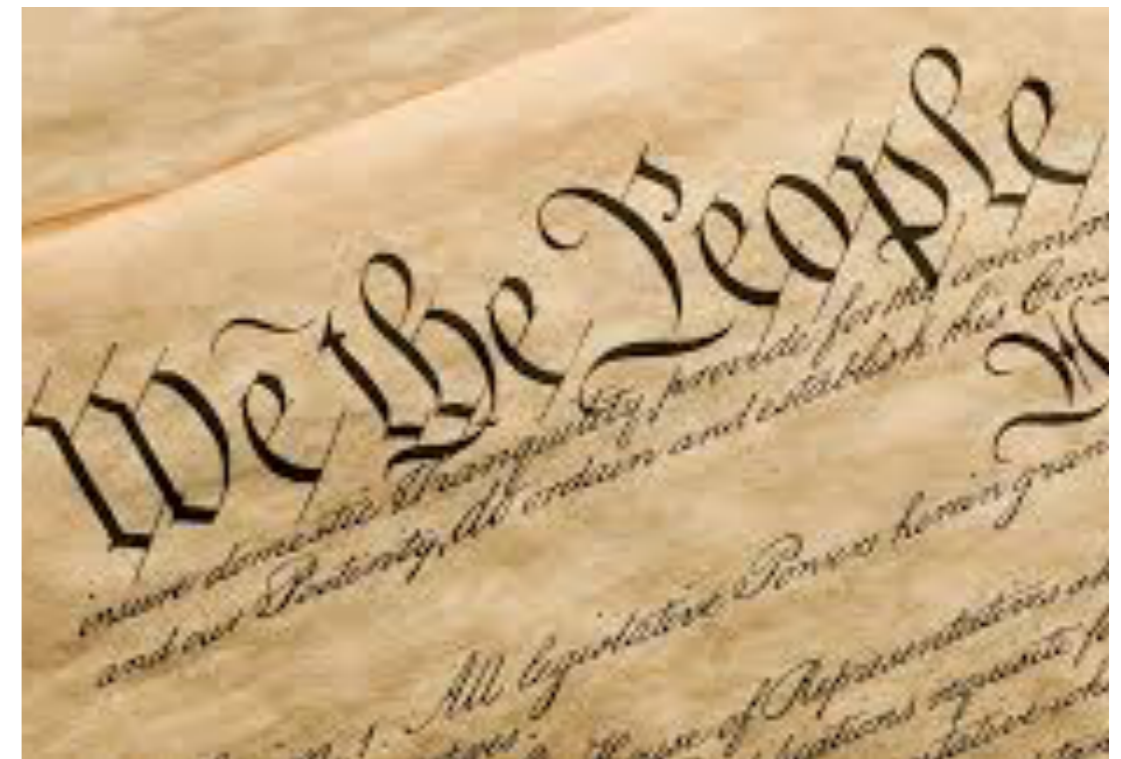 We the People
insure domestic Tranquility, provide for the common
and our Posterity, do ordain and establish this Cons
All legislative Powers herein gran
use of Representatives
requisite